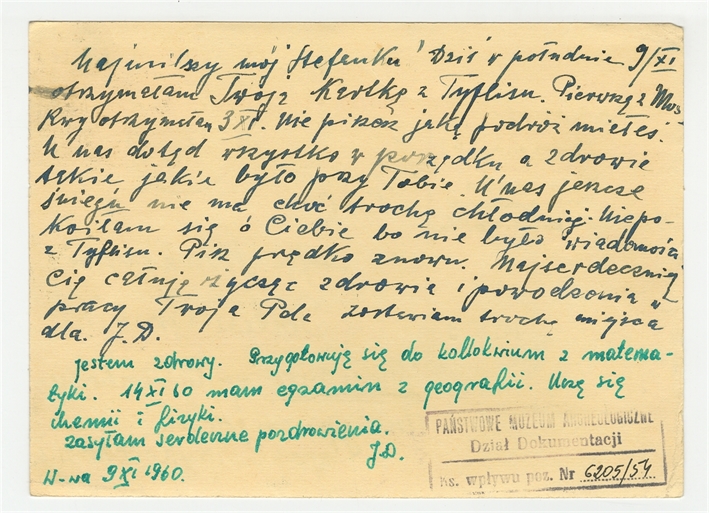 Najmilszy mój Stefanku! Dziś w południe 9/XI
otrzymałam Twoją kartkę z Tyflisu. Pierwszą z Mos-
kwy otrzymałam 3 XI. Nie piszesz jaką podróż miałeś.
U nas dotąd wszystko w porządku a zdrowie
takie jakie było przy Tobie. U nas jeszcze
śniegu nie ma choć trochę chłodniej. Niepo-
koiłam się o Ciebie bo nie było wiadomości
z Tyflisu. Pisz prędko znowu. Najserdeczniej
Cię całuję życząc zdrowia i powodzenia w
pracy Twoja zostawiam trochę miejsca
dla. J.D.
jestem zdrowy. Przygotowuję się do kollokwium z matema-
tyki. 14 XI 60 mam egzamin z geografii. Uczę się
chemii i fizyki.
zasyłam serdeczne pozdrowienia.
J.D.
W-wa 9 XI 1960.
PAŃSTWOWE MUZEUM ARCHEOLOGICZNE
Dział Dokumentacji
Ks. wpływu poz. Nr 6205/54